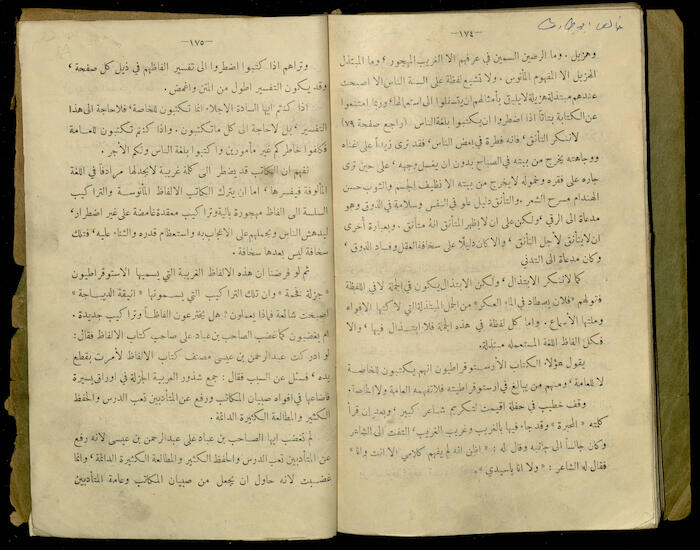 — ١٧٤ —
وهزيل . وما الرصين السمين في عرفهم الا الغريب المهجور ، وما المبتذل
الهزيل الا المفهوم المأنوس . ولا تشيع لفظة على السنة الناس الا اصبحت
عندهم مبتذلة هزيلة لا يليق بأمثالهم ان يتسفلوا الى استعمالها ، وربما امتنعوا
عن الكتابة بتاتاً اذا اضطروا ان يكتبوا بلغة الناس . (راجع صفحة ٧٩)
لا ننكر التأنق ، فانه فطرة في بعض الناس ، فقد ترى زيداً على غناه
ووجاهته يخرج من بيته في الصباح بدون ان يغسل وجهه ، على حين ترى
جاره على فقره وخموله لا يخرج من بيته الا نظيف الجسم والثوب حسن
الهندام مسرح الشعر . والتأنق دليل علو في النفس وسلامة في الذوق وهو
مدعاة الى الرقي ، ولكن على ان لا يظهر المتأنق انه متأنق . وبعبارة أخرى
ان لا يتأنق لأجل التأنق ، والا كان دليلا على سخافة العقل وفساد الذوق ،
وكان مدعاة الى التدني
كما لا ننكر الابتذال ، ولكن الابتذال يكون في الجملة لا في اللفظة
فقولهم «فلان يصطاد في الماء العكر» من الجمل المبتذلة التي لاكتها الافواه
وملتها الأسماع . واما كل لفظة في هذه الجملة فلا ابتذال فيها ، والا
فكل الفاظ اللغة المستعملة مبتذلة.
يقول هؤلاء الكتاب الأرستوقراطيون انهم يكتبون للخاصة
لا للعامة ، ومنهم من يبالغ في ارستوقراطيته فلا تفهمه العامة ولا الخاصة .
وقف خطيب في حفلة اقيمت لتكريم شاعر كبير ، وبعد ان قرأ
كلمته «المحبرة» وقد جاء فيها بالغريب وغريب الغريب ، التفت الى الشاعر
وكان جالساً الى جانبه وقال له : « اظن انه لم يفهم كلامي الا انت وانا »
فقال له الشاعر : « ولا انا يا سيدي » .
— ١٧٥ —
وتراهم اذا كتبوا اضطروا الى تفسير الفاظهم في ذيل كل صفحة ،
وقد يكون التفسير اطول من المتن واغمض .
اذا كنتم ايها السادة الأجلاء انما تكتبون للخاصة ، فلا حاجة الى هذا
التفسير ، بل لا حاجة الى كل ما تكتبون . واذا كنتم تكتبون للعامة
فكلفوا خاطركم غير مأمورين واكتبوا بلغة الناس ولكم الأجر .
نفهم ان الكاتب قد يضطر الى كلمة غريبة لا يجد لها مرادفاً في اللغة
المألوفة فيفسرها ، اما ان يترك الكاتب الالفاظ المأنوسة والتراكيب
السلسة الى الفاظ مهجورة بالية وتراكيب معقدة غامضة على غير اضطرار ،
ليدهش الناس ويحملهم على الاعجاب به واستعظام قدره والثناء عليه ، فتلك
سخافة ليس بعدها سخافة .
ثم لو فرضنا ان هذه الالفاظ الغريبة التي يسميها الاستوقراطيون
« جزلة فخمة » وان تلك التراكيب التي يسمونها « انيقة الديباجة »
اصبحت شائعة فماذا يعملون ؟ هل يخترعون الفاظاً وتراكيب جديدة .
ام يغضبون كما غضب الصاحب بن عباد على صاحب كتاب الالفاظ فقال :
لو ادركت عبد الرحمن بن عيسى مصنف كتاب الالفاظ لأمرت بقطع
يده ، فسئل عن السبب فقال : جمع شذور العربية الجزلة في اوراق يسيرة
فاضاعها في افواه صبيان المكاتب ورفع عن المتأدبين تعب الدرس والحفظ
الكثير والمطالعة الكثيرة الدائمة .
لم تغضب ايها الصاحب بن عباد على عبد الرحمن بن عيسى لانه رفع
عن المتأدبين تعب الدرس والحفظ الكثير والمطالعة الكثيرة الدائمة ، وانما
غضبت لانه حاول ان يجعل من صبيان المكاتب وعامة المتأدبين